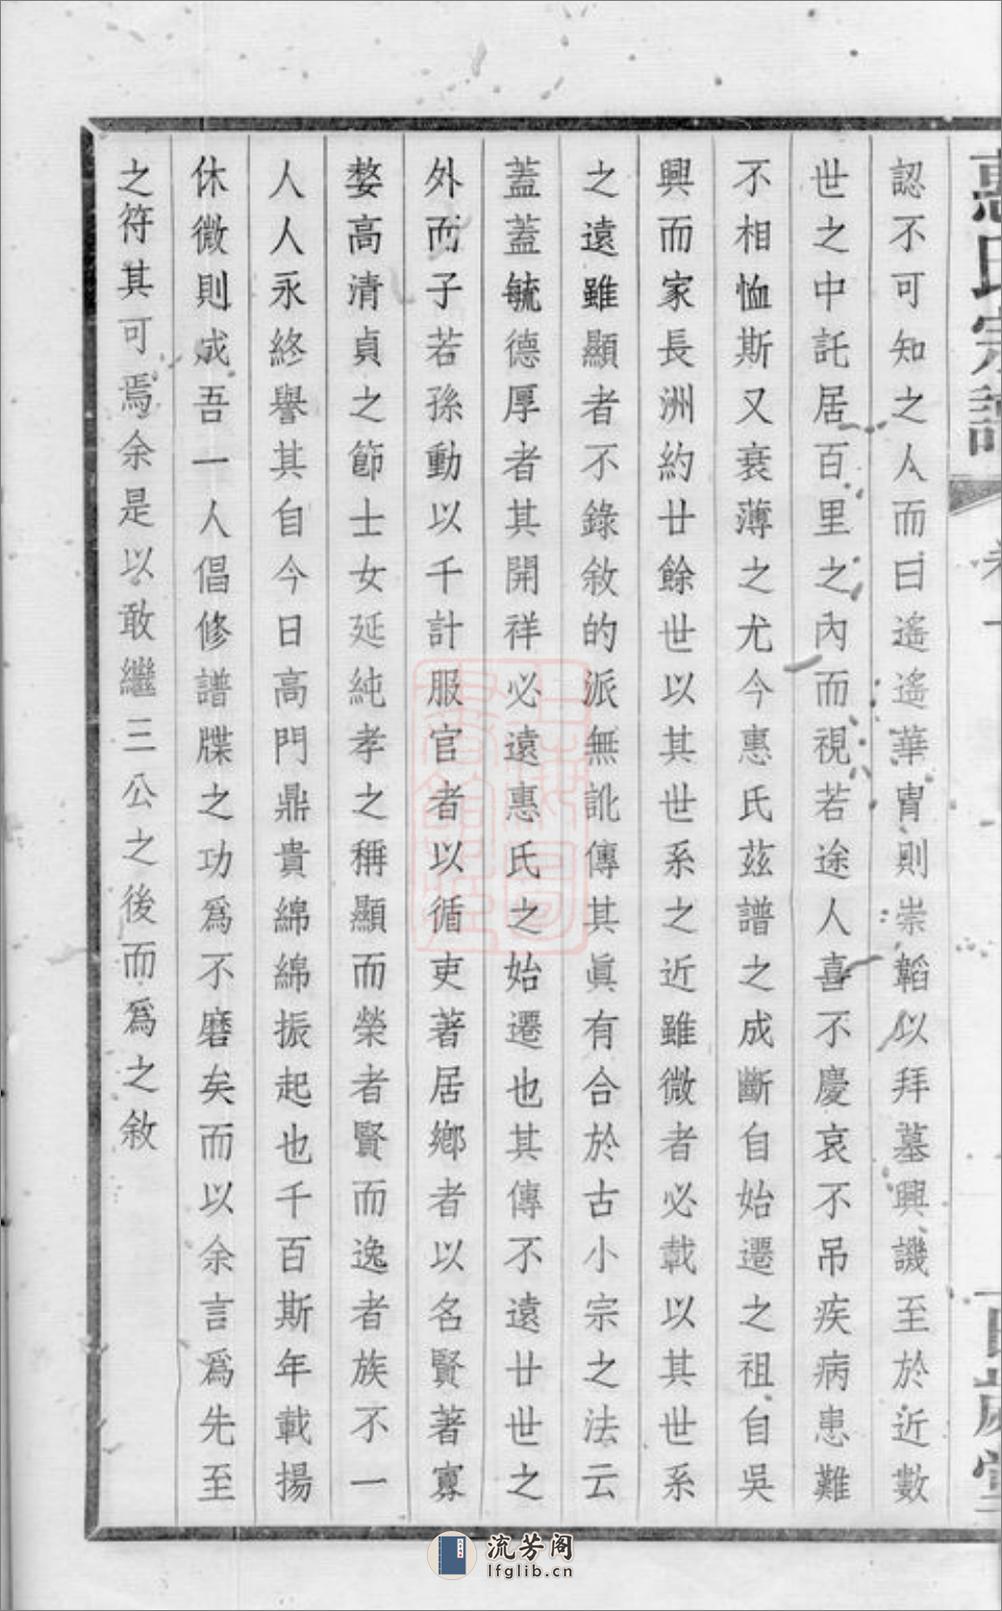 惠氏宗譜
卷一
百歲堂
認不可知之人而曰遙遙華胄則崇韜以拜墓興譏至於近數
世之中託居百里之內而視若途人喜不慶哀不吊疾病患難
不相恤斯又衰薄之尤今惠氏茲譜之成斷自始遷之祖自吳
興而家長洲約廿餘世以其世系之近雖微者必載以其世系
之遠雖顯者不錄敘的派無訛傳其眞有合於古小宗之法云
蓋蓋毓德厚者其開祥必遠惠氏之始遷也其傳不遠廿世之
外而子若孫動以千計服官者以循吏著居鄉者以名賢著寡
婺高清貞之節士女延純孝之稱顯而榮者賢而逸者族不一
人人永終譽其自今日高門鼎貴綿綿振起也千百斯年載揚
休微則成吾一人倡修譜牒之功爲不磨矣而以余言爲先至
之符其可焉余是以敢繼三公之後而爲之敘
流芳阁
lfglib.cn